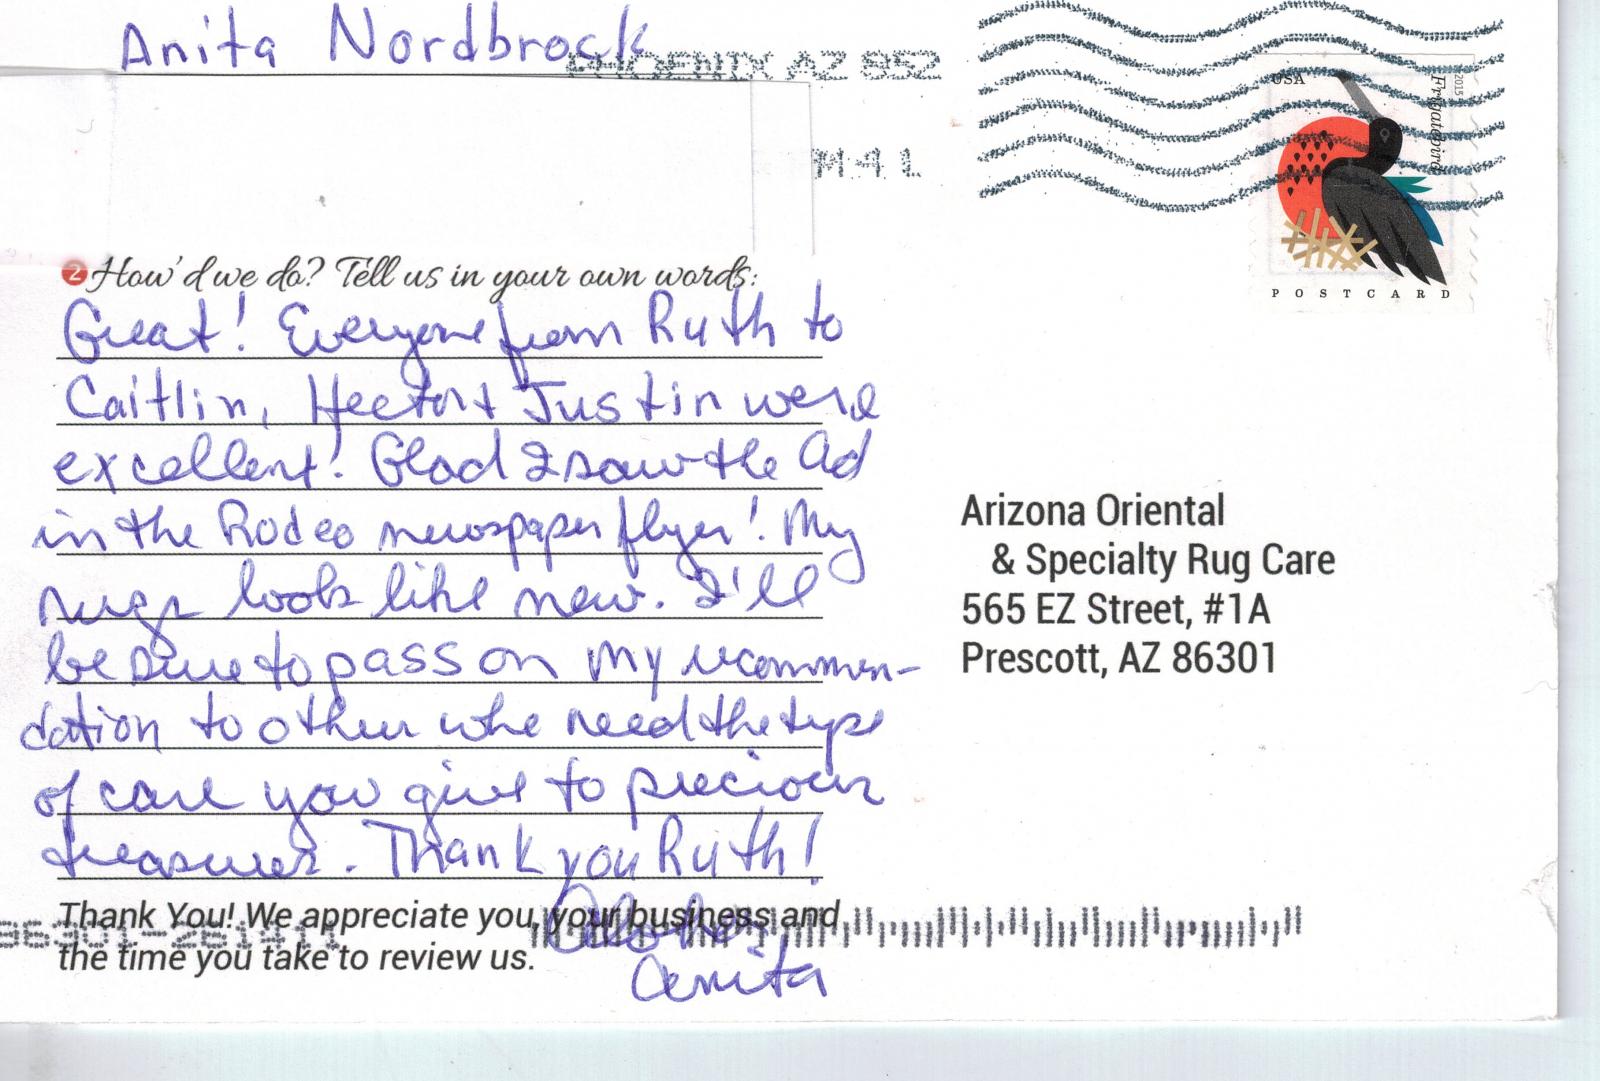 Anita Nordbrock
PHOENIX AZ 852
USA
2015
Frigatebird
POSTCARD
2 How'd we do? Tell us in your own words:
Great! Everyone from Ruth to
Caitlin, Hector + Justin were
excellent! Glad I saw the Ad
in the Rodeo newspaper flyer! My
rugs look like new. I'll
be sure to pass on my recommen-
dation to other who need the type
of care you give to precious
treasures. Thank you Ruth!
Aloha,
Anita
Arizona Oriental
& Specialty Rug Care
565 EZ Street, #1A
Prescott, AZ 86301
Thank You! We appreciate you, your business and
the time you take to review us.